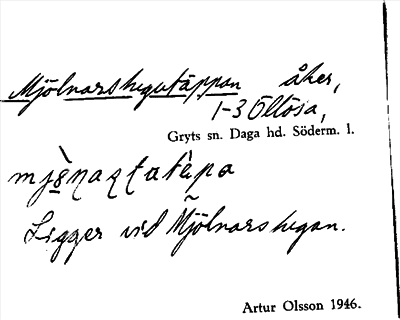 Mjölnarshagutäppan åker,
1-3 Öllösa,
Gryts sn. Daga hd. Söderm. l.
Ligger vid Mjölnarshagan.
Artur Olsson 1946.